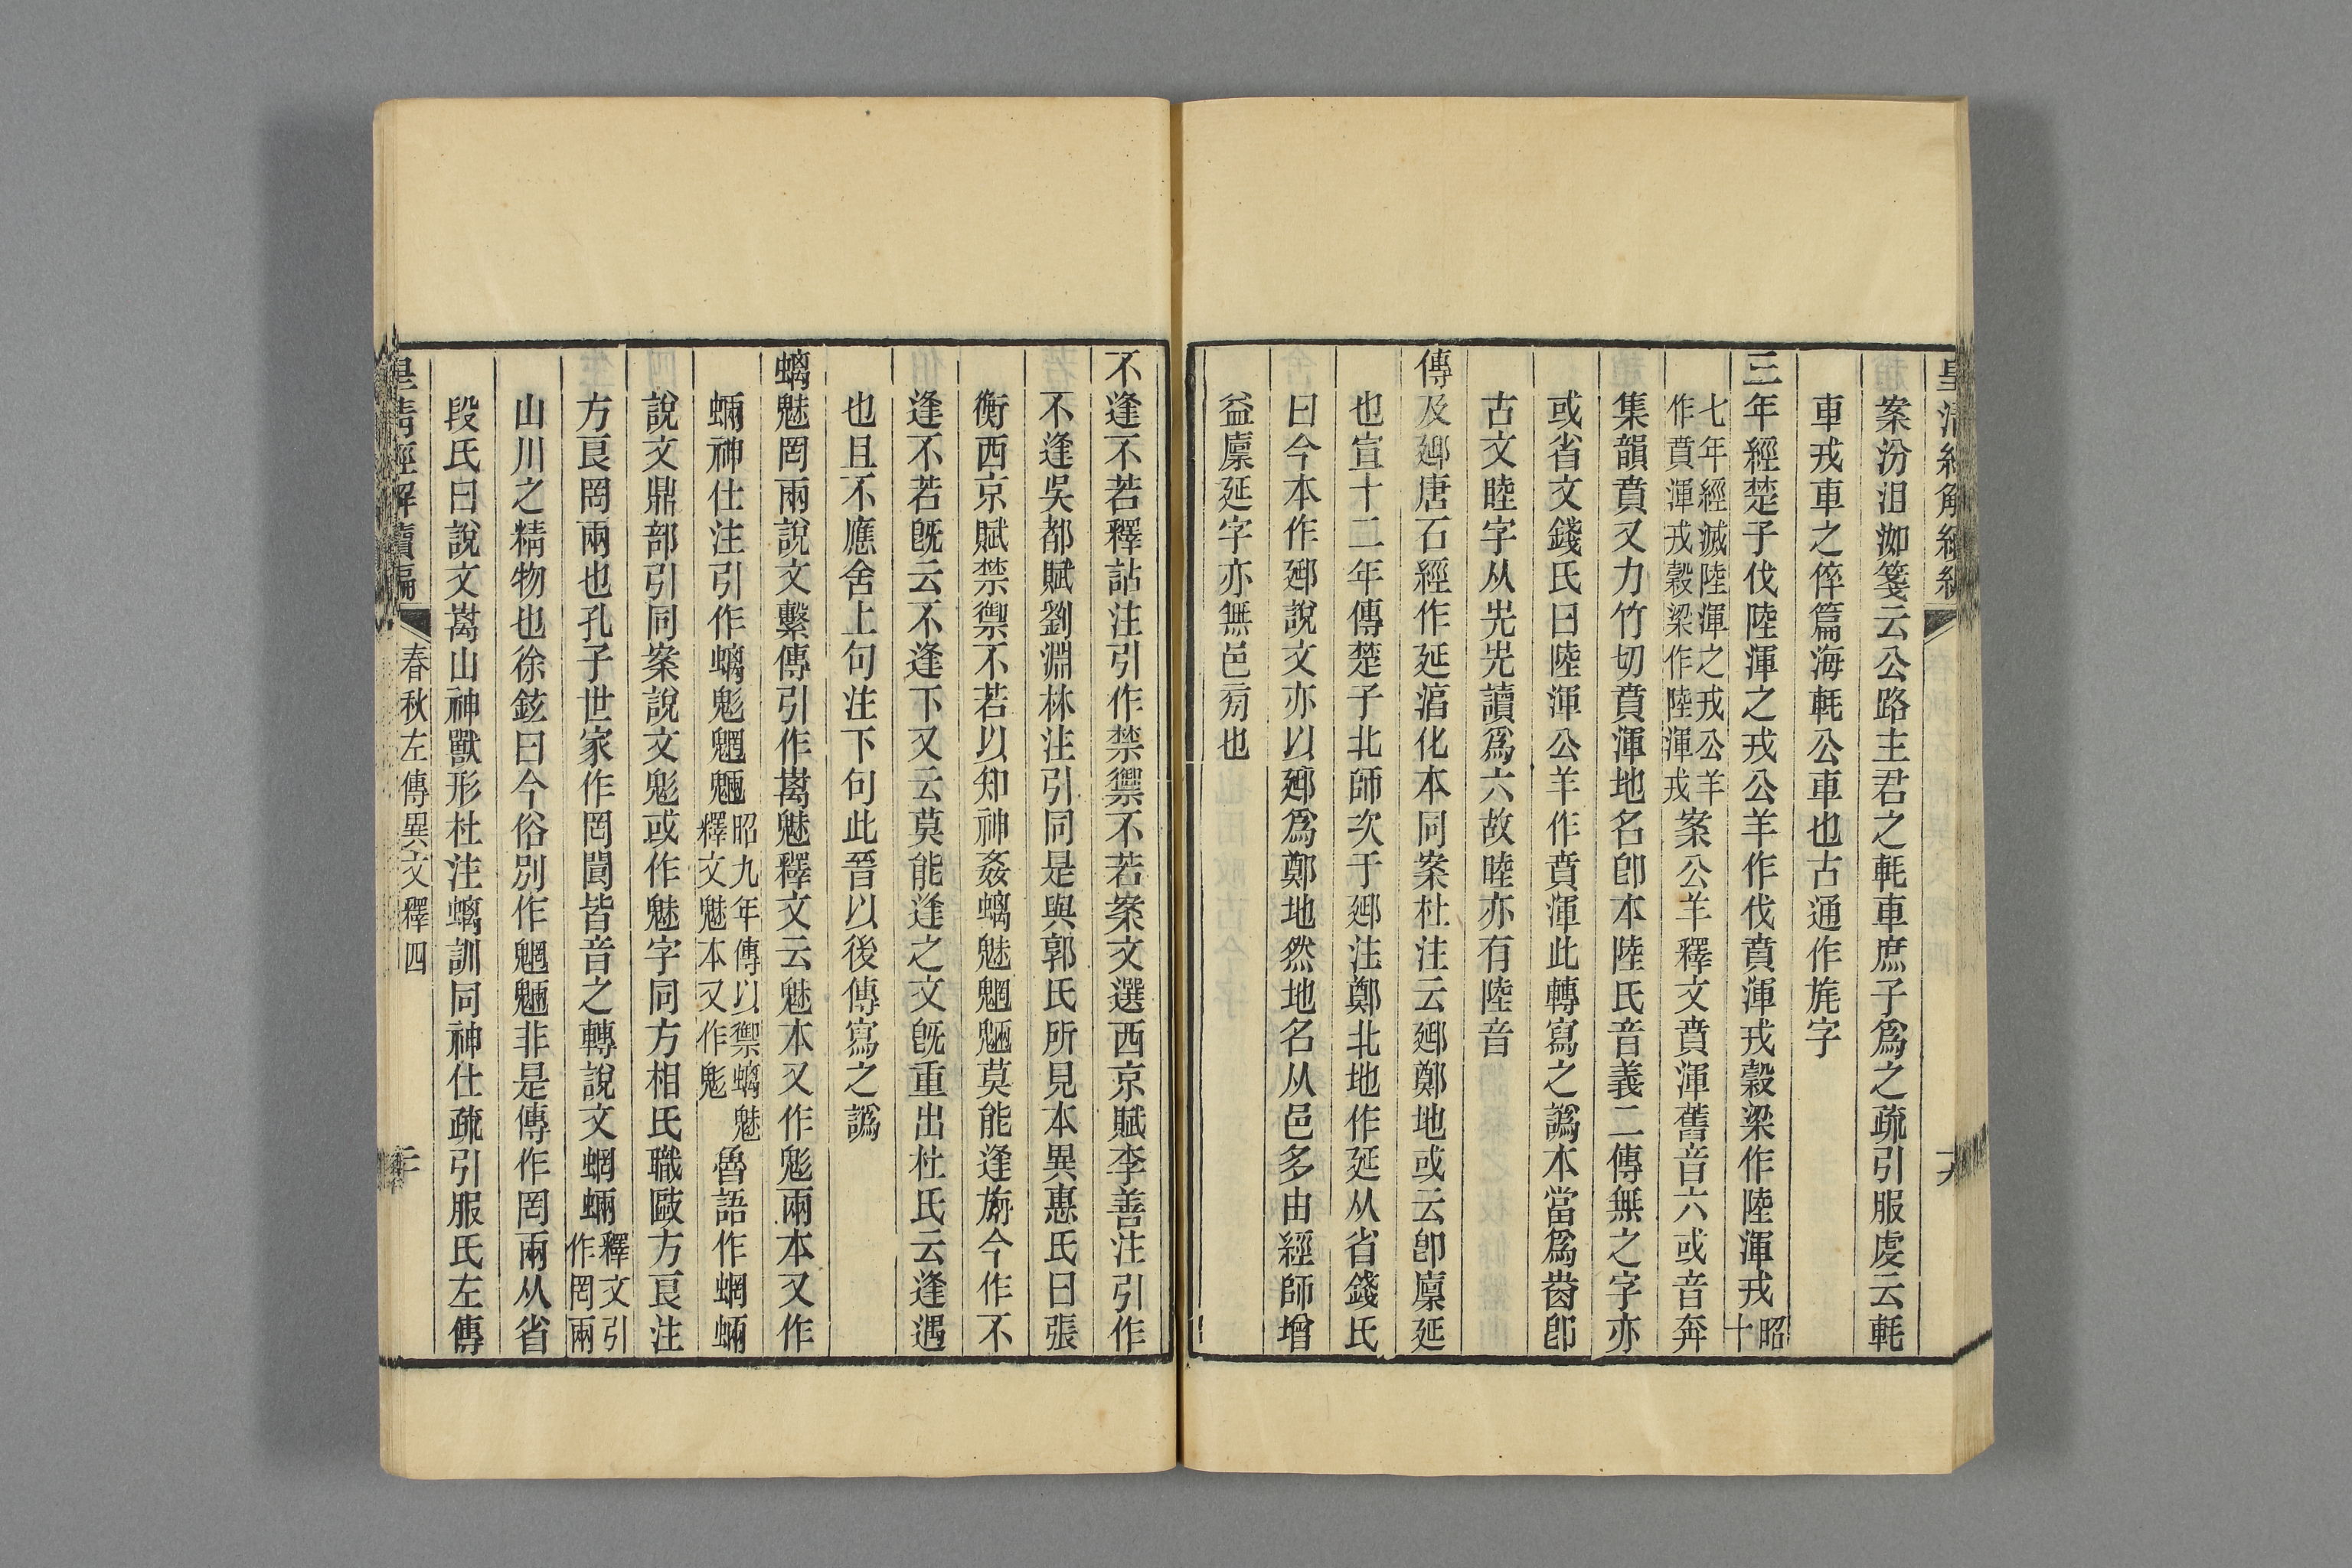 案汾沮洳箋云公路主君之軞車庶子爲之疏引服虔云軞
車戎車之倅篇海軞公車也古通作旄字
三年經楚子伐陸渾之戎公羊作伐賁渾戎穀梁作陸渾戎昭十
七年經滅陸渾之戎公羊作賁渾戎穀梁作陸渾戎案公羊釋文賁渾舊音六或音奔
集韻賁又力竹切賁渾地名卽本陸氏音義二傳無之字亦
或省文錢氏曰陸渾公羊作賁渾此轉寫之譌本當爲𡴆卽
古文睦字从𡴆𡴆讀爲六故睦亦有陸音
傳及𨝸唐石經作延湻化本同案杜注云𨝸鄭地或云卽廩延
也宣十二年傳楚子北師次于𨝸注鄭北地作延从省錢氏
曰今本作𨝸說文亦以𨝸爲鄭地然地名从邑多由經師增
益廩延字亦無邑㫄也
不逢不若釋詁注引作禁禦不若案文選西京賦李善注引作
不逢吳都賦劉淵林注引同是與郭氏所見本異惠氏曰張
衡西京賦禁禦不若以知神姦螭魅魍魎莫能逢旃今作不
逢不若旣云不逢下又云莫能逢之文旣重出杜氏云逢遇
也且不應舍上句注下句此晉以後傳寫之譌
螭魅罔兩說文繫傳引作离魅釋文云魅本又作鬽兩本又作
蜽神仕注引作螭鬽魍魎昭九年傳以禦螭魅釋文魅本又作鬽魯語作蝄蜽
說文鼎部引同案說文鬽或作魅字同方相氏職敺方良注
方良罔兩也孔子世家作罔閬皆音之轉說文蝄蜽釋文引作罔兩
山川之精物也徐鉉曰今俗別作魍魎非是傳作罔兩从省
段氏曰說文离山神獸形杜注螭訓同神仕疏引服氏左傳
皇淸經解續編
春秋左傳異文釋四